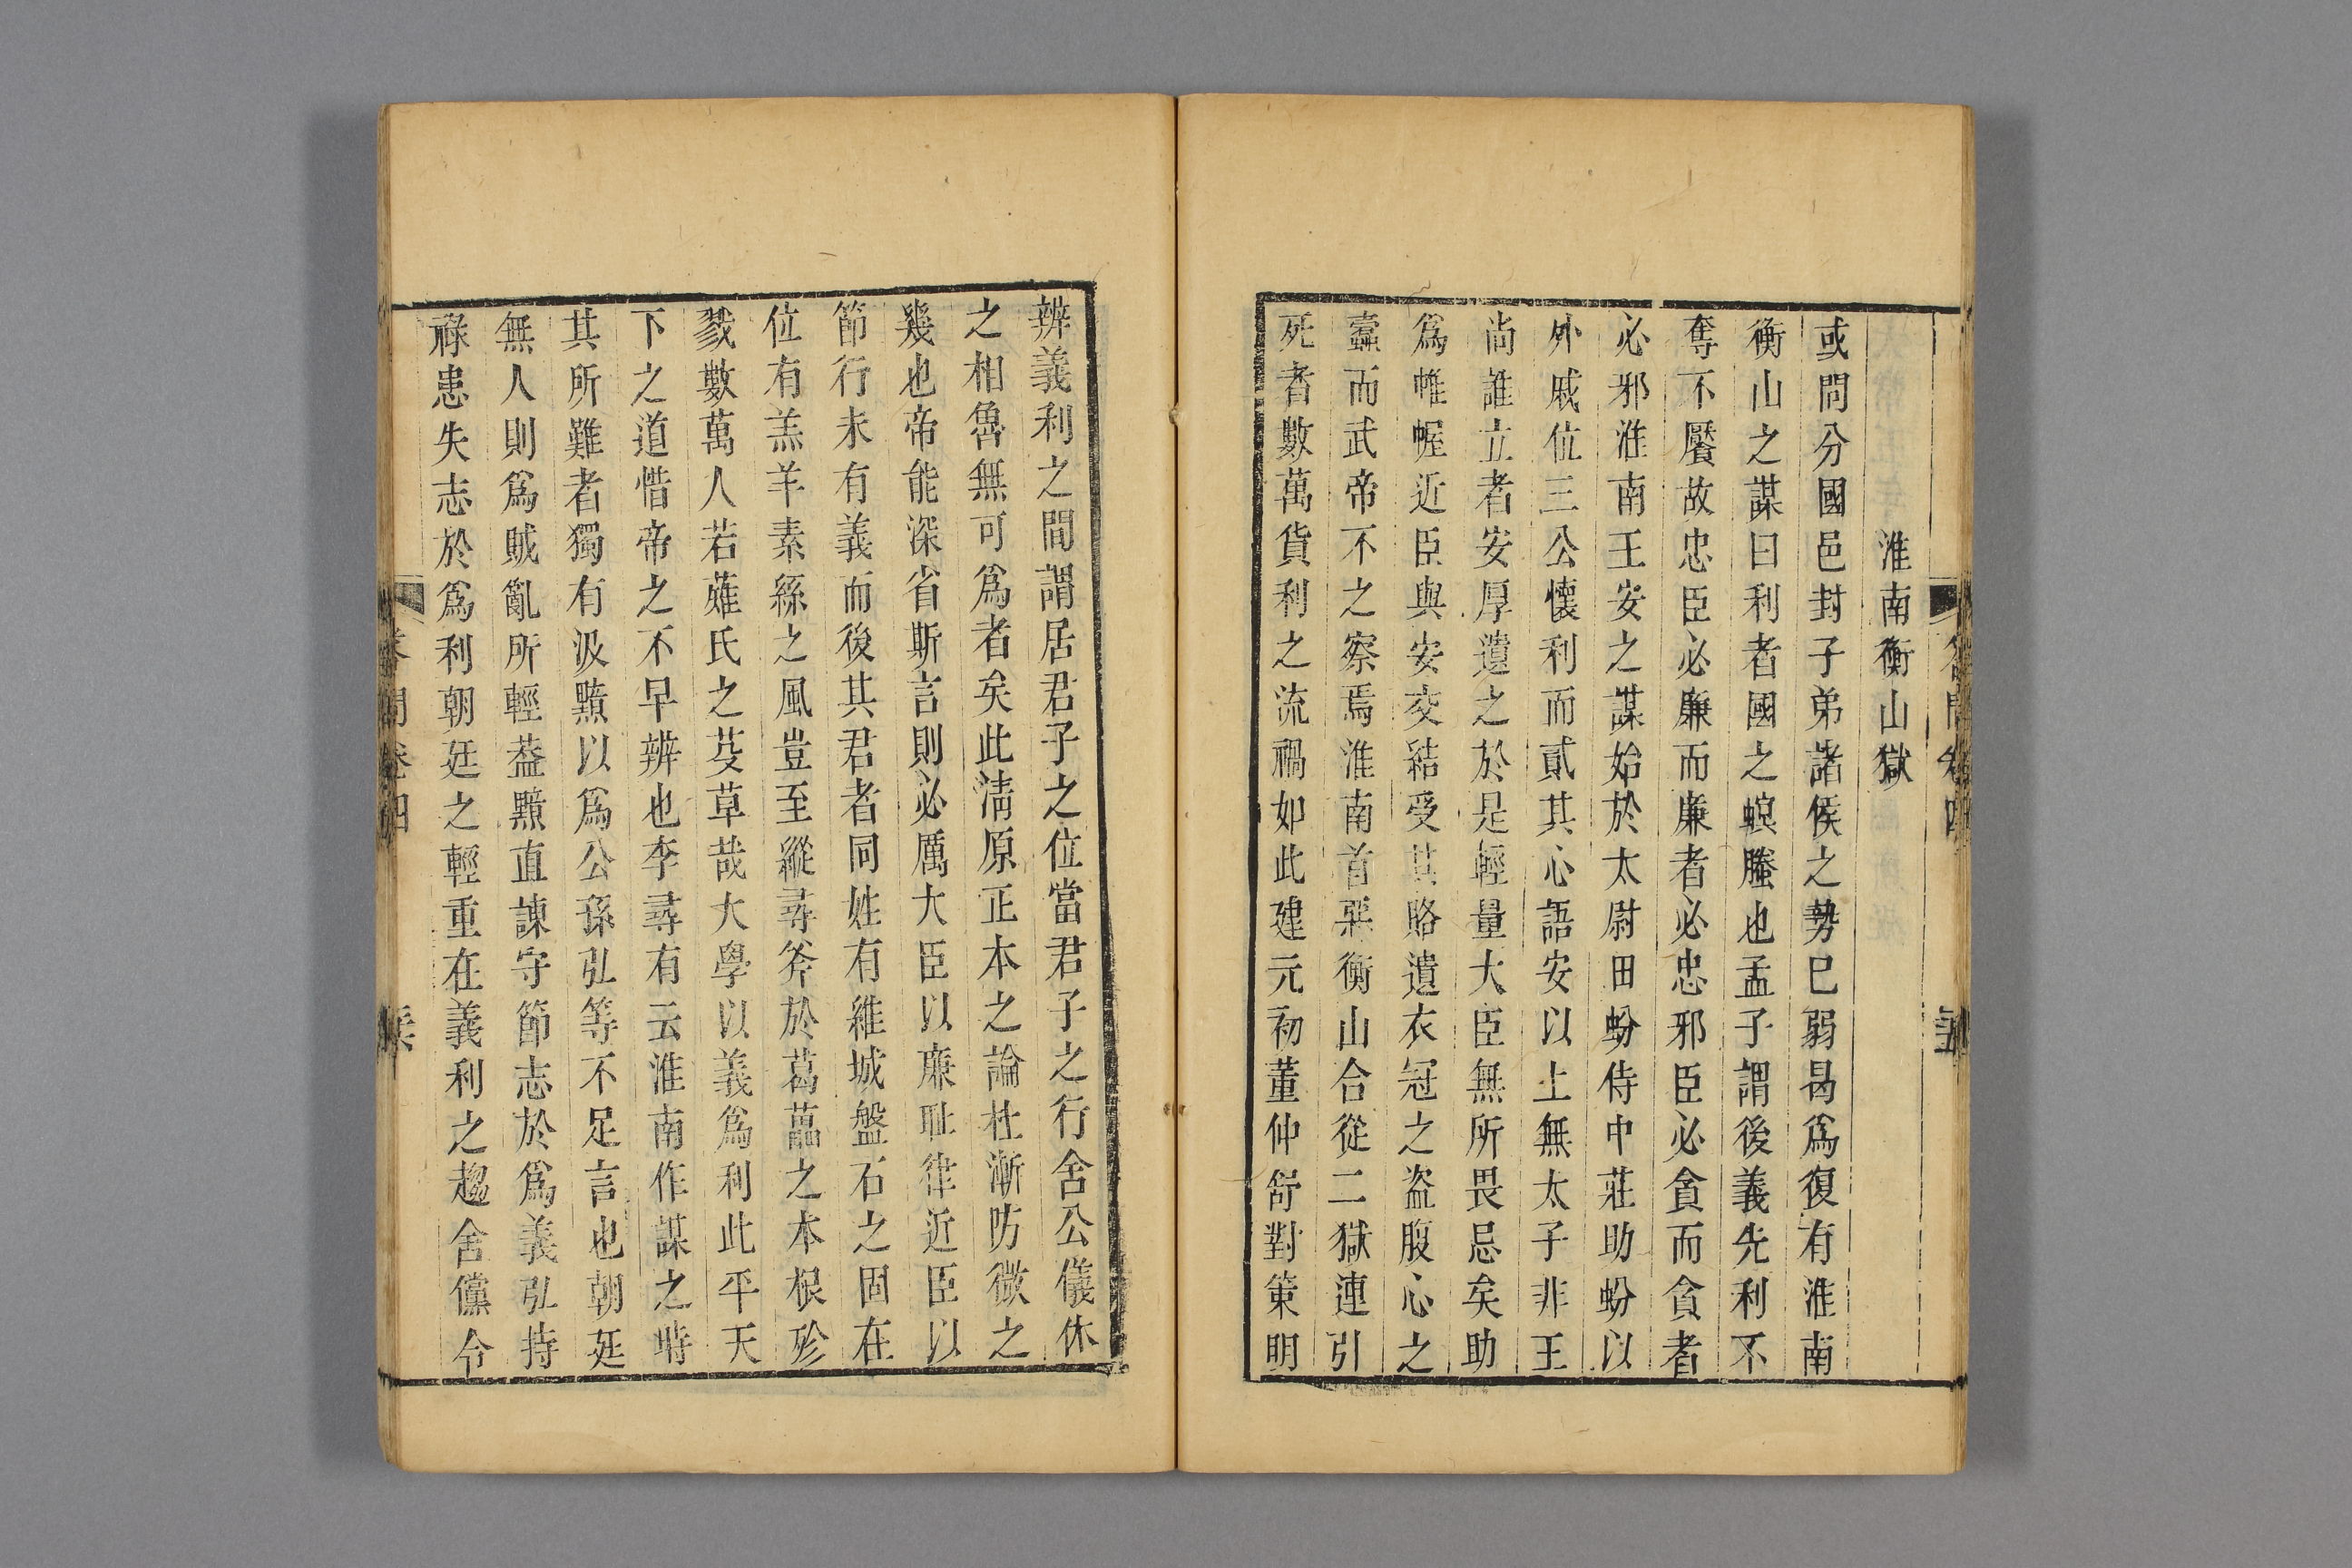 淮南衡山獄
或問分國邑封子弟諸侯之勢已弱曷爲復有淮南
衡山之謀曰利者國之螟螣也孟子謂後義先利不
奪不饜故忠臣必廉而廉者必忠邪臣必貪而貪者
必邪淮南王安之謀始於太尉田蚡侍中莊助蚡以
外戚位三公懷利而貳其心語安以上無太子非王
尚誰立者安厚遺之於是輕量大臣無所畏忌矣助
爲帷幄近臣與安交結受其賂遺衣冠之盗腹心之
蠹而武帝不之察焉淮南首惡衡山合從二獄連引
死者數萬貨利之流禍如此建元初董仲舒對策明
辨義利之間謂居君子之位當君子之行舍公儀休
之相魯無可爲者矣此淸原正本之論杜漸防微之
幾也帝能深省斯言則必厲大臣以廉耻律近臣以
節行未有義而後其君者同姓有維城盤石之固在
位有羔羊素絲之風豈至縱尋斧於葛藟之本根殄
戮數萬人若薙氏之芟草哉大學以義爲利此平天
下之道惜帝之不早辨也李尋有云淮南作謀之時
其所難者獨有汲黯以爲公孫弘等不足言也朝廷
無人則爲賊亂所輕葢黯直諫守節志於爲義弘持
祿患失志於爲利朝廷之輕重在義利之趨舍儻令